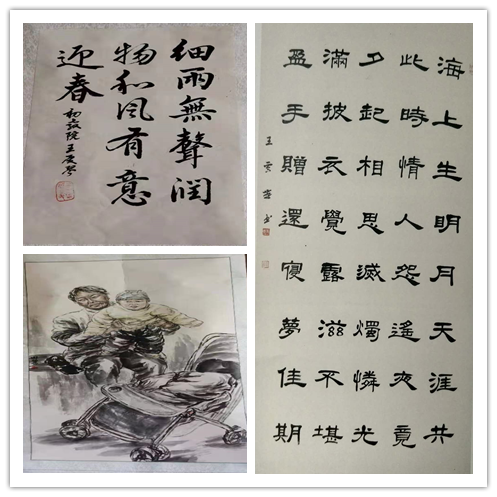 細雨無聲潤
物和风有意
迎春
初教院 王
海上生明月天涯共
此時情人怨遙夜竟
夕起相思滅燭憐光
滿披衣覺露滋不堪
盈手贈還寢夢佳期
王